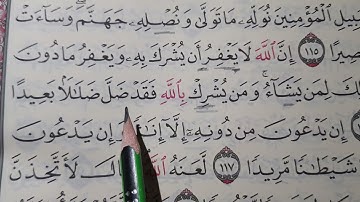 بِيلِ الْمُؤْمِنِينَ نُوَلِّهِ مَا تَوَلَّىٰ وَنُصْلِهِ جَهَنَّمَ وَسَآءَتْ
صِيرًا ١١٥ إِنَّ اللَّهَ لَا يَغْفِرُ أَن يُشْرَكَ بِهِ وَيَغْفِرُ مَا دُونَ
لِكَ لِمَن يَشَآءُ وَمَن يُشْرِكْ بِاللَّهِ فَقَدْ ضَلَّ ضَلَالًا بَعِيدًا
إِن يَدْعُونَ مِن دُونِهِ إِلَّآ إِنَا وَإِن يَدْعُونَ
شَيْطَانًا مَّرِيدًا ١١٧ لَّعَنَهُ اللَّهُ لَأَتَّخِذَنَّ